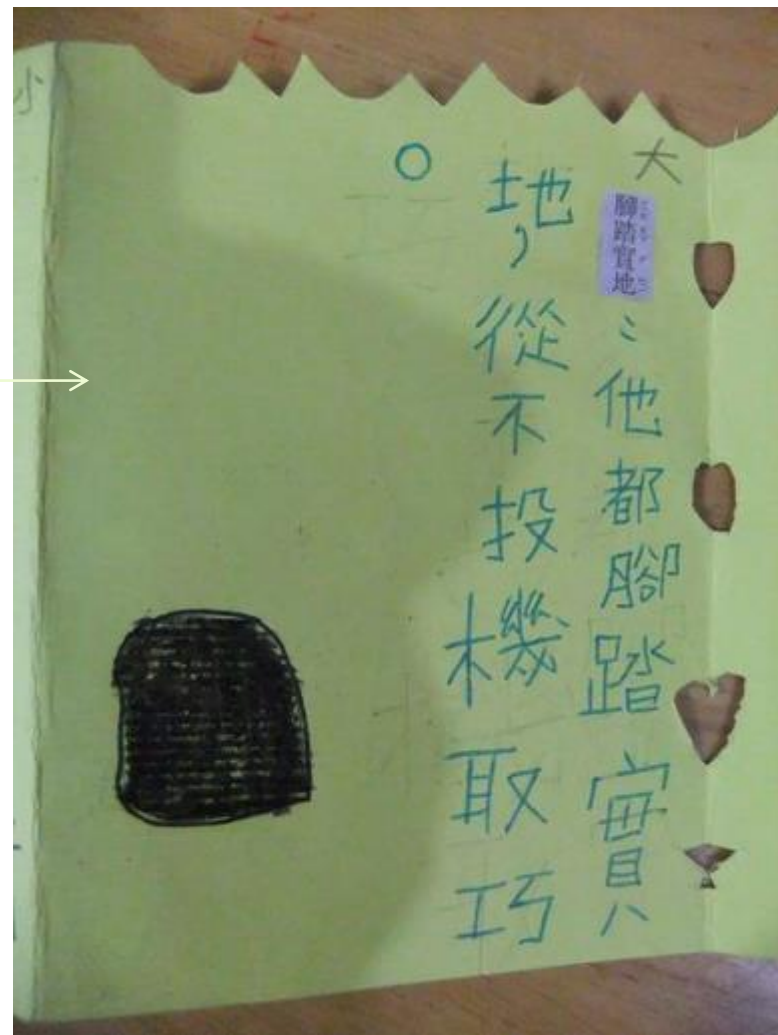 大
腳踏實地：他都腳踏實
地，從不投機取巧
。
小